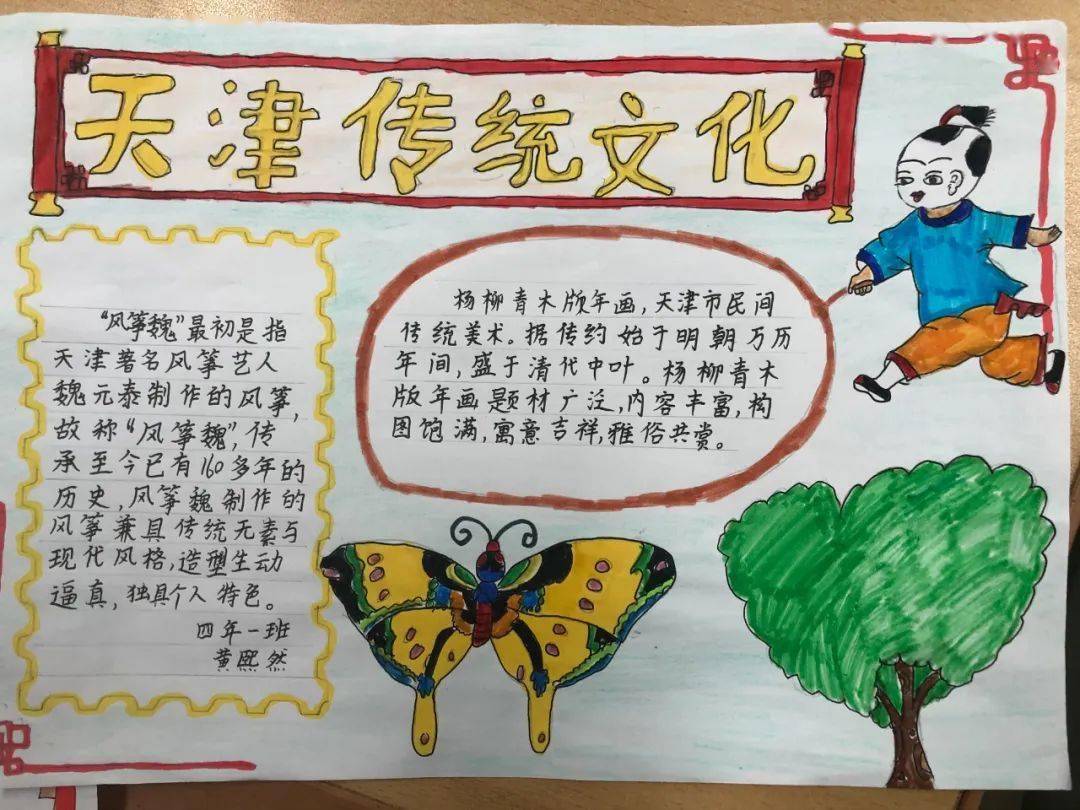 天津传统文化
“风筝魏”最初是指
天津著名风筝艺人
魏元泰制作的风筝,
故称“风筝魏”,传
承至今已有160多年的
历史,风筝魏制作的
风筝兼具传统无素与
现代风格,造型生动
逼真,独具个人特色。
四年一班
黄熙然
杨柳青木版年画,天津市民间
传统美术。据传约始于明朝万历
年间,盛于清代中叶。杨柳青木
版年画题材广泛,内容丰富,构
图饱满,寓意吉祥,雅俗共赏。